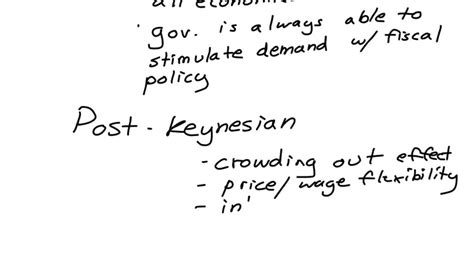 all
· gov. is always able to
stimulate demand w/ fiscal
policy
Post - Keynesian
- crowding out effect
- price/wage flexibility
- in'